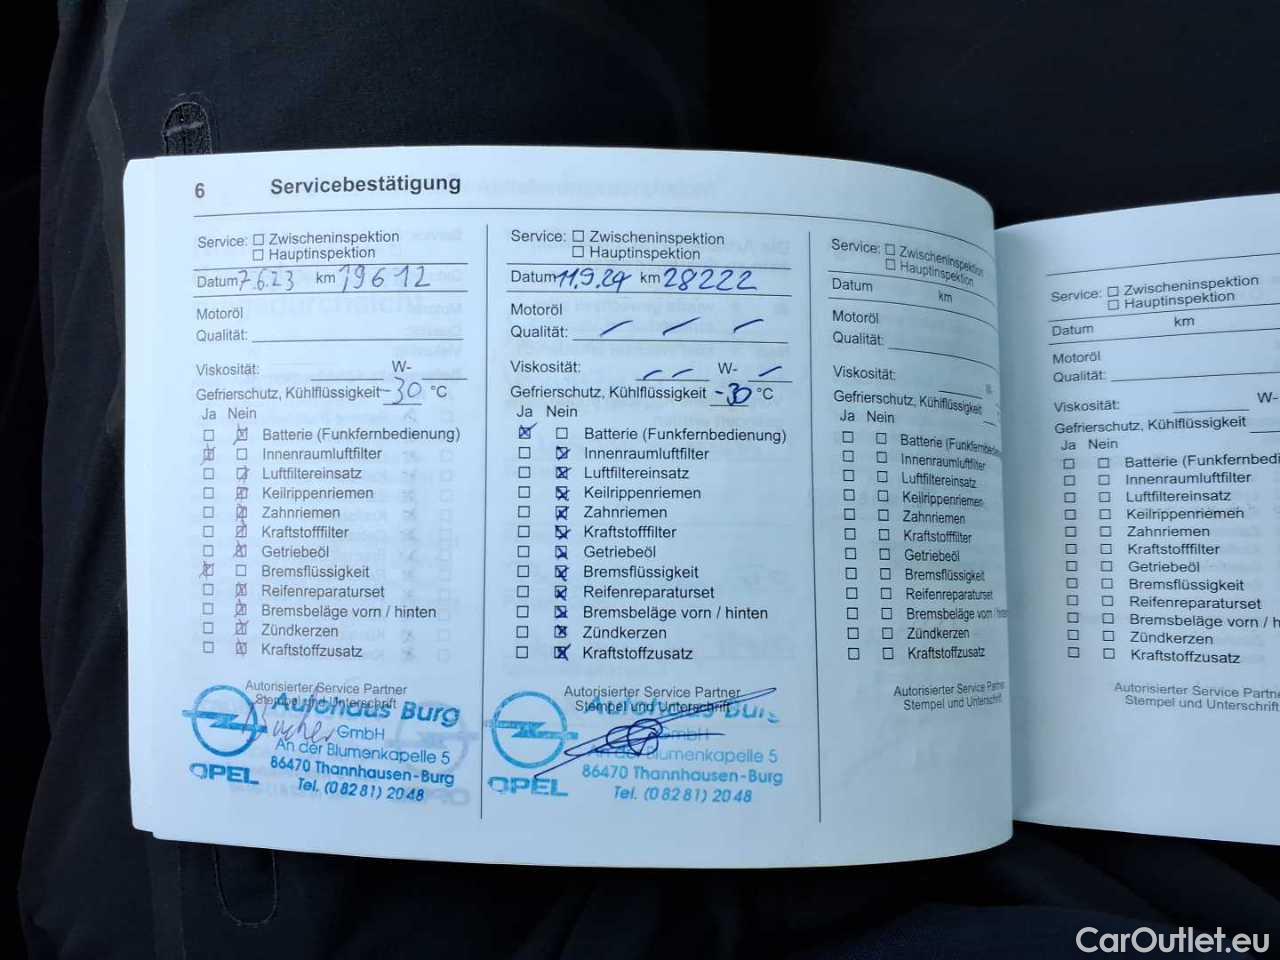 6 Servicebestätigung
Service: ☐ Zwischeninspektion
☐ Hauptinspektion
Datum 7.6.23 km 19612
Motoröl
Qualität:
Viskosität: W-
Gefrierschutz, Kühlflüssigkeit -30 °C
Ja Nein
Batterie (Funkfernbedienung)
Innenraumluftfilter
Luftfiltereinsatz
Keilrippenriemen
Zahnriemen
Kraftstofffilter
Getriebeöl
Bremsflüssigkeit
Reifenreparaturset
Bremsbeläge vorn / hinten
Zündkerzen
Kraftstoffzusatz
Autorisierter Service Partner
Stempel und Unterschrift
Autohaus Burg
GmbH
An der Blumenkapelle 5
86470 Thannhausen-Burg
Tel. (08281) 2048
OPEL
Service: ☐ Zwischeninspektion
☐ Hauptinspektion
Datum 11.9.24 km 28222
Motoröl
Qualität: — — —
Viskosität: — — W- —
Gefrierschutz, Kühlflüssigkeit -30 °C
Ja Nein
Batterie (Funkfernbedienung)
Innenraumluftfilter
Luftfiltereinsatz
Keilrippenriemen
Zahnriemen
Kraftstofffilter
Getriebeöl
Bremsflüssigkeit
Reifenreparaturset
Bremsbeläge vorn / hinten
Zündkerzen
Kraftstoffzusatz
Autorisierter Service Partner
Stempel und Unterschrift
Autohaus Burg
GmbH
An der Blumenkapelle 5
86470 Thannhausen-Burg
Tel. (08281) 2048
OPEL
Service: ☐ Zwischeninspektion
☐ Hauptinspektion
Datum km
Motoröl
Qualität:
Viskosität: W-
Gefrierschutz, Kühlflüssigkeit
Ja Nein
Batterie (Funkfernbe
Innenraumluftfilter
Luftfiltereinsatz
Keilrippenriemen
Zahnriemen
Kraftstofffilter
Getriebeöl
Bremsflüssigkeit
Reifenreparaturset
Bremsbeläge vorn / hin
Zündkerzen
Kraftstoffzusatz
Autorisierter Service Partn
Stempel und Unterschrift
Service: ☐ Zwischeninspektion
☐ Hauptinspektion
Datum km
Motoröl
Qualität:
Viskosität: W-
Gefrierschutz, Kühlflüssigkeit
Ja Nein
Batterie (Funkfernbedi
Innenraumluftfilter
Luftfiltereinsatz
Keilrippenriemen
Zahnriemen
Kraftstofffilter
Getriebeöl
Bremsflüssigkeit
Reifenreparaturset
Bremsbeläge vorn / h
Zündkerzen
Kraftstoffzusatz
Autorisierter Service Partner
Stempel und Unterschrift
CarOutlet.eu